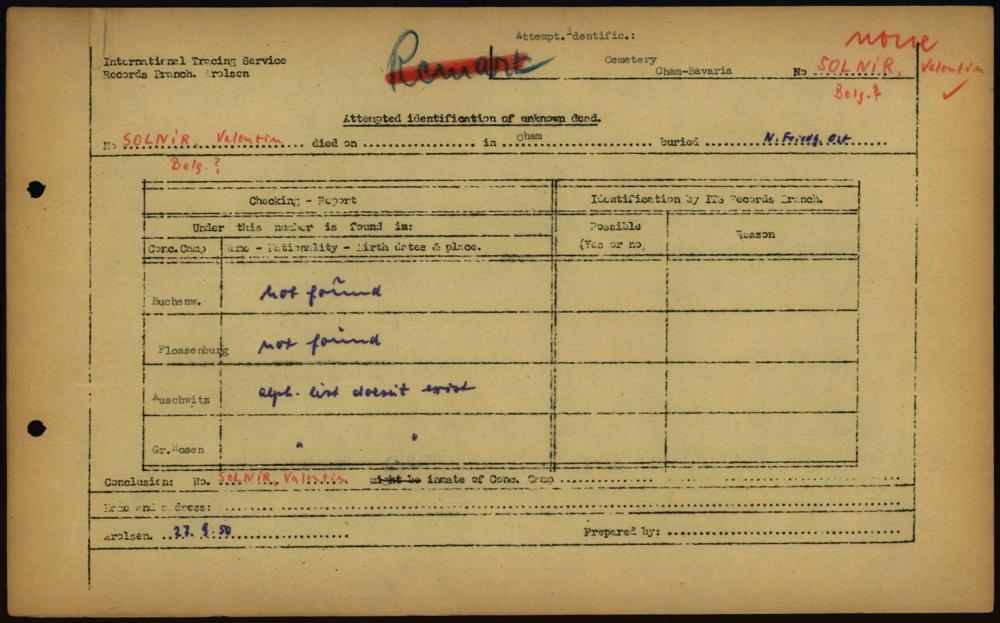 Attempt. Identific.:
none
International Tracing Service
Records Branch. Arolsen
Remark
Cemetery
Cham-Bavaria
No SOLNIR, Valentin
Belg.?
Attempted identification of unknown dead.
No SOLNIR, Valentin died on .......... in Cham .......... buried N. Friedh. Ost
Belg.?
Checking - Report
Identification by ITS Records Branch.
Under this number is found in:
Possible
(Yes or no)
Reason
Conc.Camp
Name - Nationality - Birth dates & place.
Buchenw. not found
Flossenburg not found
Auschwitz alph. list doesn't exist
Gr.Rosen " "
Conclusion: No. SOLNIR, Valentin might be inmate of Conc. Camp ..........
Name and address: ..........
Arolsen. 27. 9. 50 Prepared by: ..........